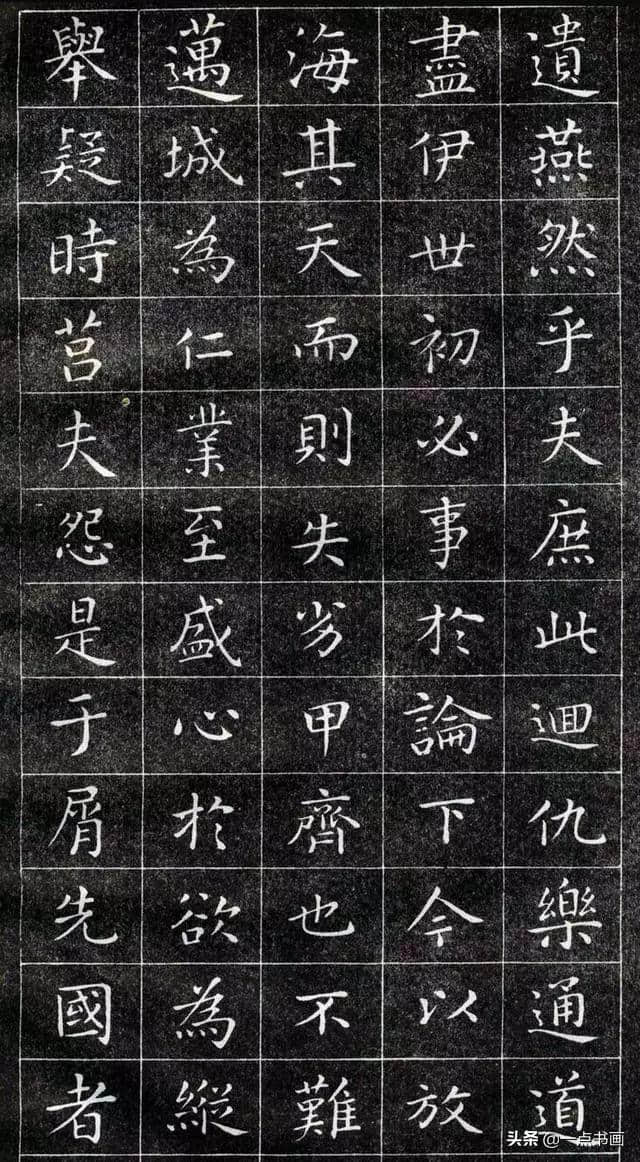 遺燕然乎夫庶此逥仇樂通道
盡伊世初必事於論下今以放
海其天而則失劣甲齊也不難
邁城為仁業至盛心於欲為縱
舉疑時莒夫怨是于屑先國者
头条 @一点书画